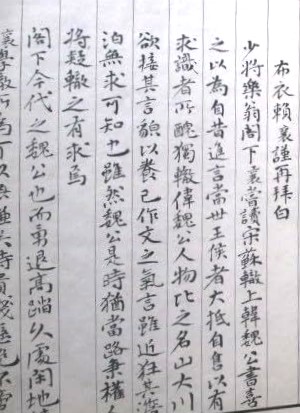 布衣賴襄謹再拜白
少將樂翁閣下襄嘗讀宋蘇轍上韓魏公書喜
之以為自昔進言當世王侯者大抵自售以有
求識者所醜獨轍偉魏公人物比之名山大川
欲接其言貌以養己作文之氣言雖近狂其澹
泊無求可知也雖然魏公是時猶當路秉權人
將疑轍之有求焉
閣下今代之魏公也而勇退高蹈久處閑地
襄學轍